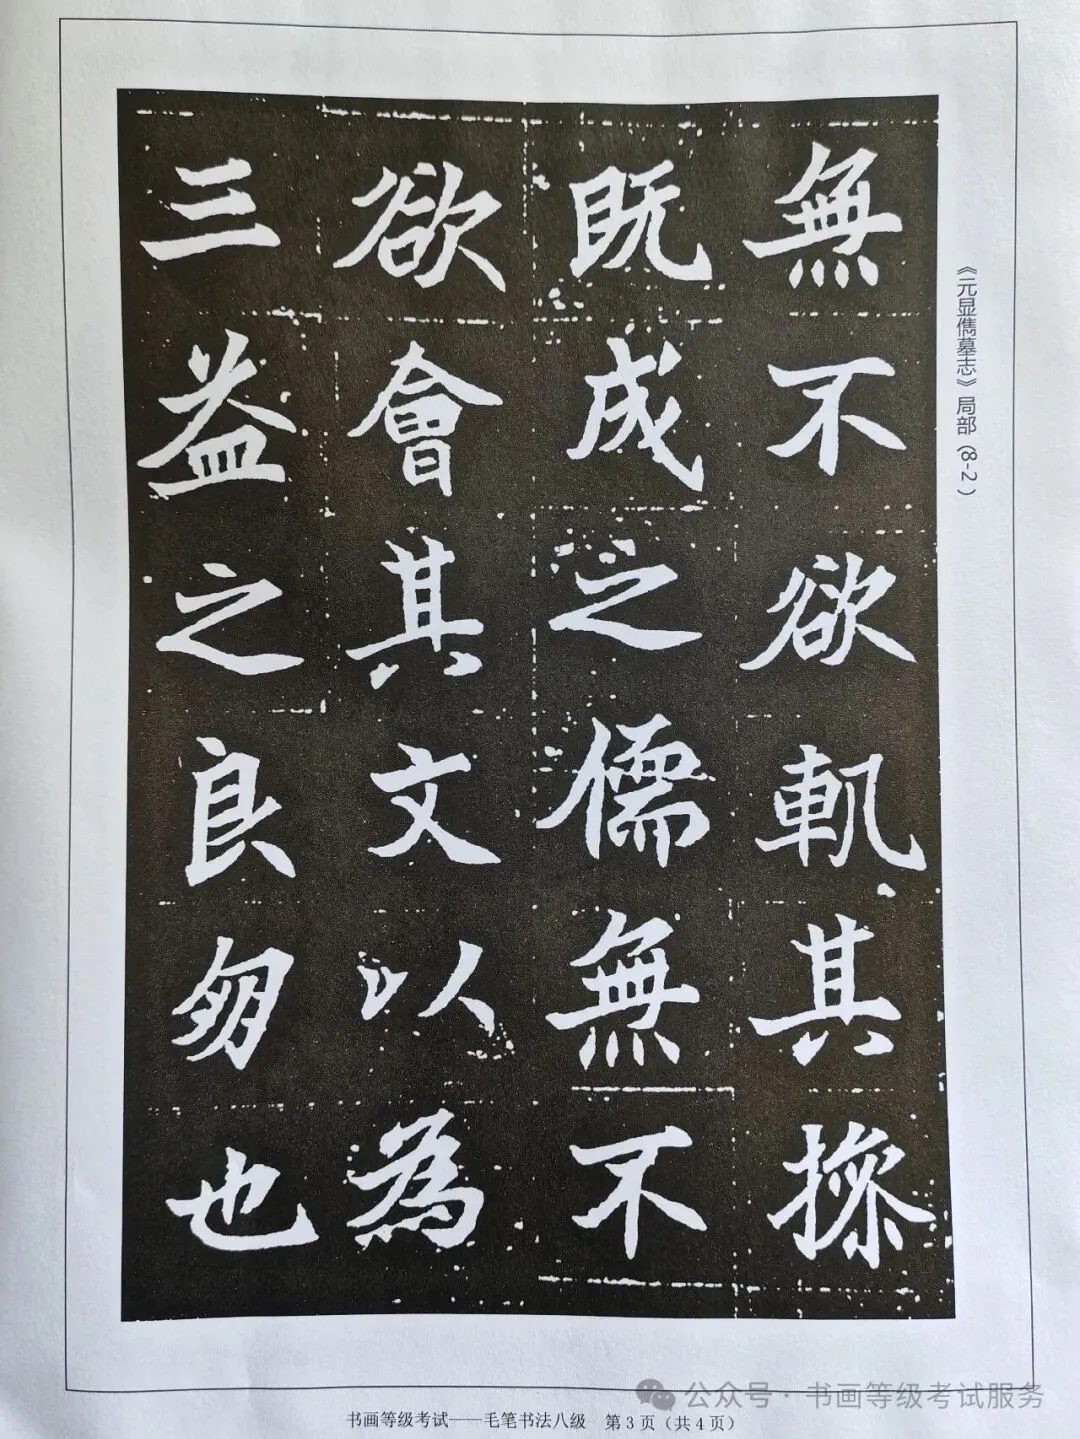 無不欲軌其操
既成之儒無不
欲會其文以為
三益之良朋也
《元显儁墓志》局部（8-2）
公众号·书画等级考试服务
书画等级考试——毛笔书法八级 第3页（共4页）